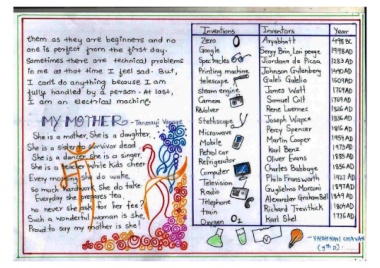 them as they are beginners and no
one is perfect from the first day.
Sometimes there are technical problems
in me at that time I feel sad. But,
I can't do anything because I am
fully handled by a person. At last,
I am an electrical machine.
MY MOTHER
- Tanmayi
She is a mother, She is a daughter,
She is a sister dead
She is a dancer, She is a singer,
She is a while Kids cheer
Every morning She do wake
So much hardwork She do take
Everyday She prepares tea,
no never She ask for her fee?
Such a wonderful woman is she,
Proud to say my mother is she!
Inventions Inventors Year
Zero Aryabhatt
Google Sergy Brin, Lari peage 1998AD
Spectacles Giordano da Pisa 1283 AD
Printing machine Johnson Gutenberg 1440AD
telescope Galili Galilio 1609AD
steam engine James Watt 1769AD
Camera Samuel Colt
Revolver Rene Laennec 1816 AD
Stethscope Joseph
Microwave Percy Spencer
Mobile Martin Cooper
Petrol car Karl Benz
Refrigerator Oliver Evans
Computer Charles Babbage
Television Philo Fransworth 1927 AD
Radio Guglielmo Marconi 1897AD
Telephone Alexander Graham Bell
train Richard Trevithick 1804AD
Oxygen O2 Karl Shel